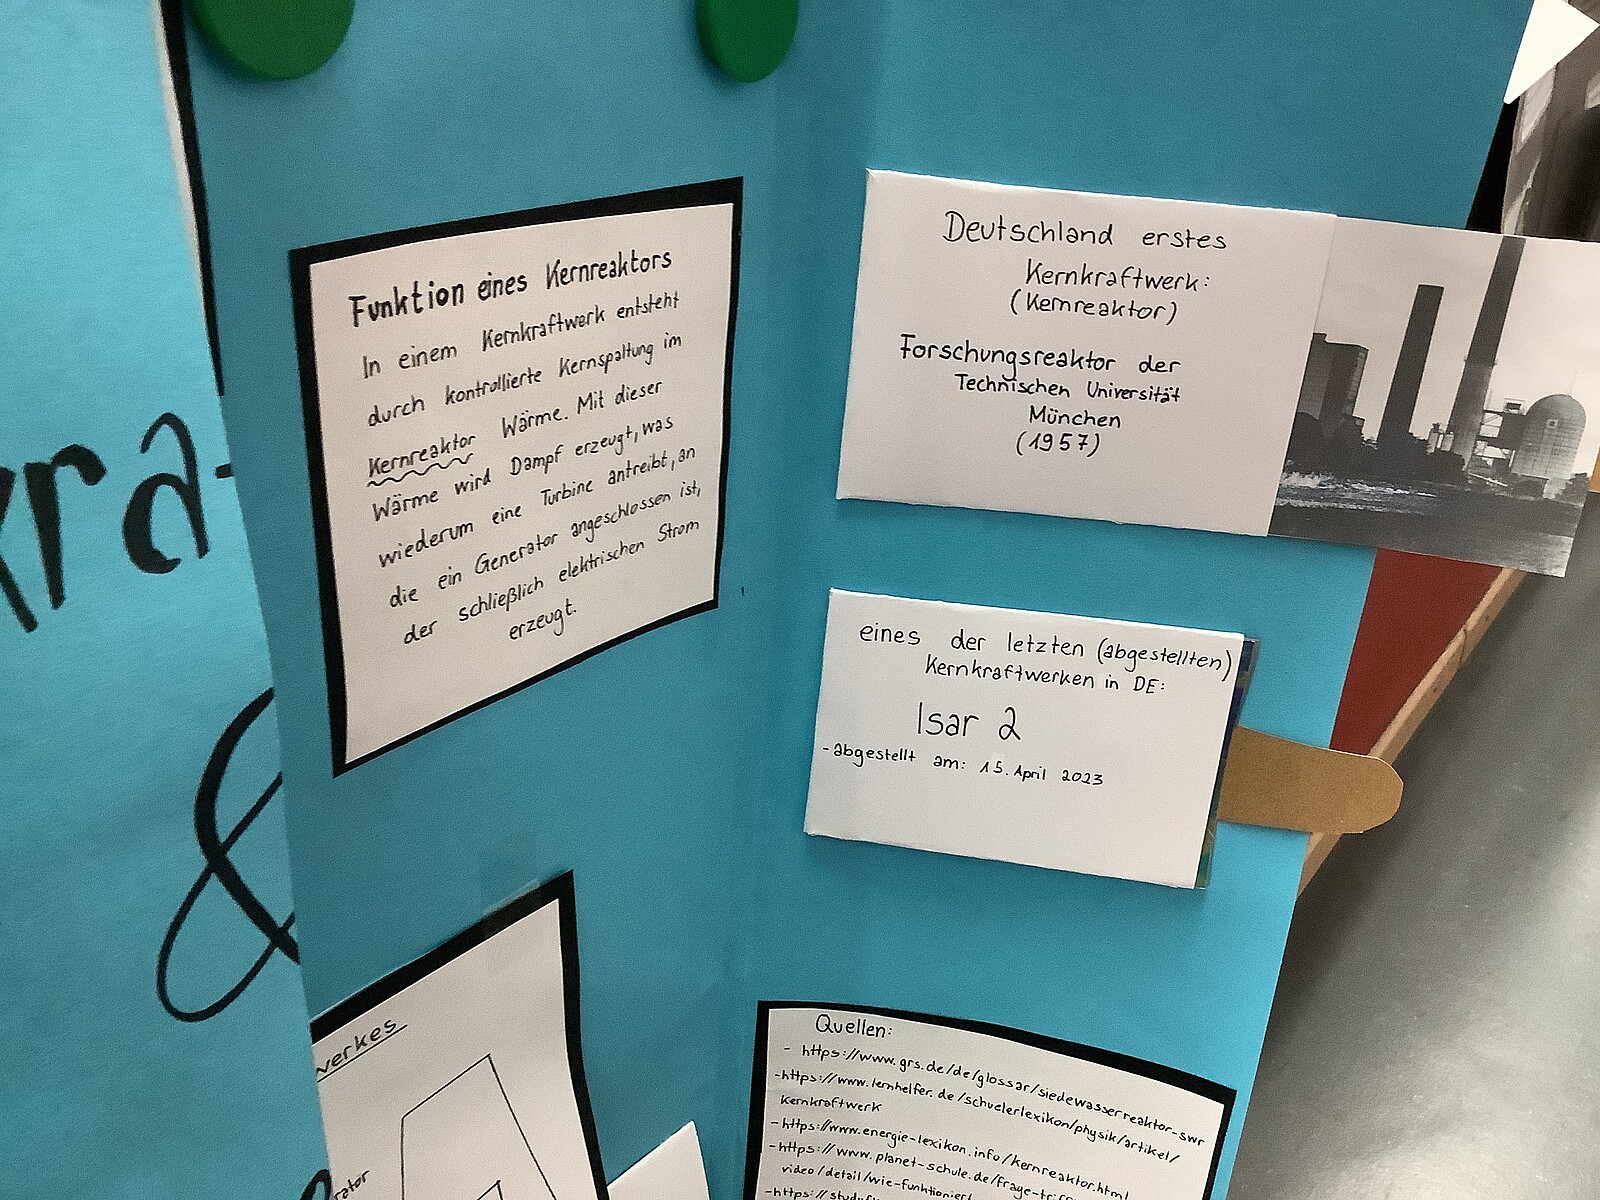 kra-
&
Funktion eines Kernreaktors
In einem Kernkraftwerk entsteht
durch kontrollierte Kernspaltung im
Kernreaktor Wärme. Mit dieser
Wärme wird Dampf erzeugt, was
wiederum eine Turbine antreibt, an
die ein Generator angeschlossen ist,
der schließlich elektrischen Strom
erzeugt.
werkes
rator
Deutschland erstes
Kernkraftwerk:
(Kernreaktor)
Forschungsreaktor der
Technischen Universität
München
(1957)
eines der letzten (abgestellten)
Kernkraftwerken in DE:
Isar 2
- abgestellt am: 15. April 2023
Quellen:
- https://www.grs.de/de/glossar/siedewasserreaktor-swr
- https://www.lernhelfer.de/schuelerlexikon/physik/artikel/
kernkraftwerk
- https://www.energie-lexikon.info/kernreaktor.html
- https://www.planet-schule.de/frage-tr
video/detail/wie-funktioniert
- https://studyf